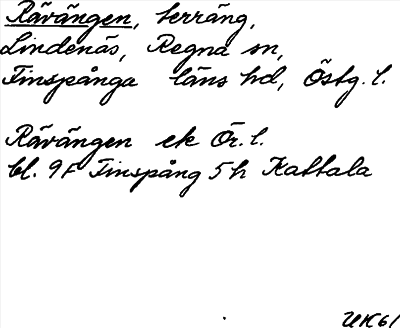 Rävängen, terräng,
Lindenäs, Regna sn,
Finspånga läns hd, Östg. l.
Rävängen ek Ör. l.
bl. 9F Finspång 5h Kattala
UK61